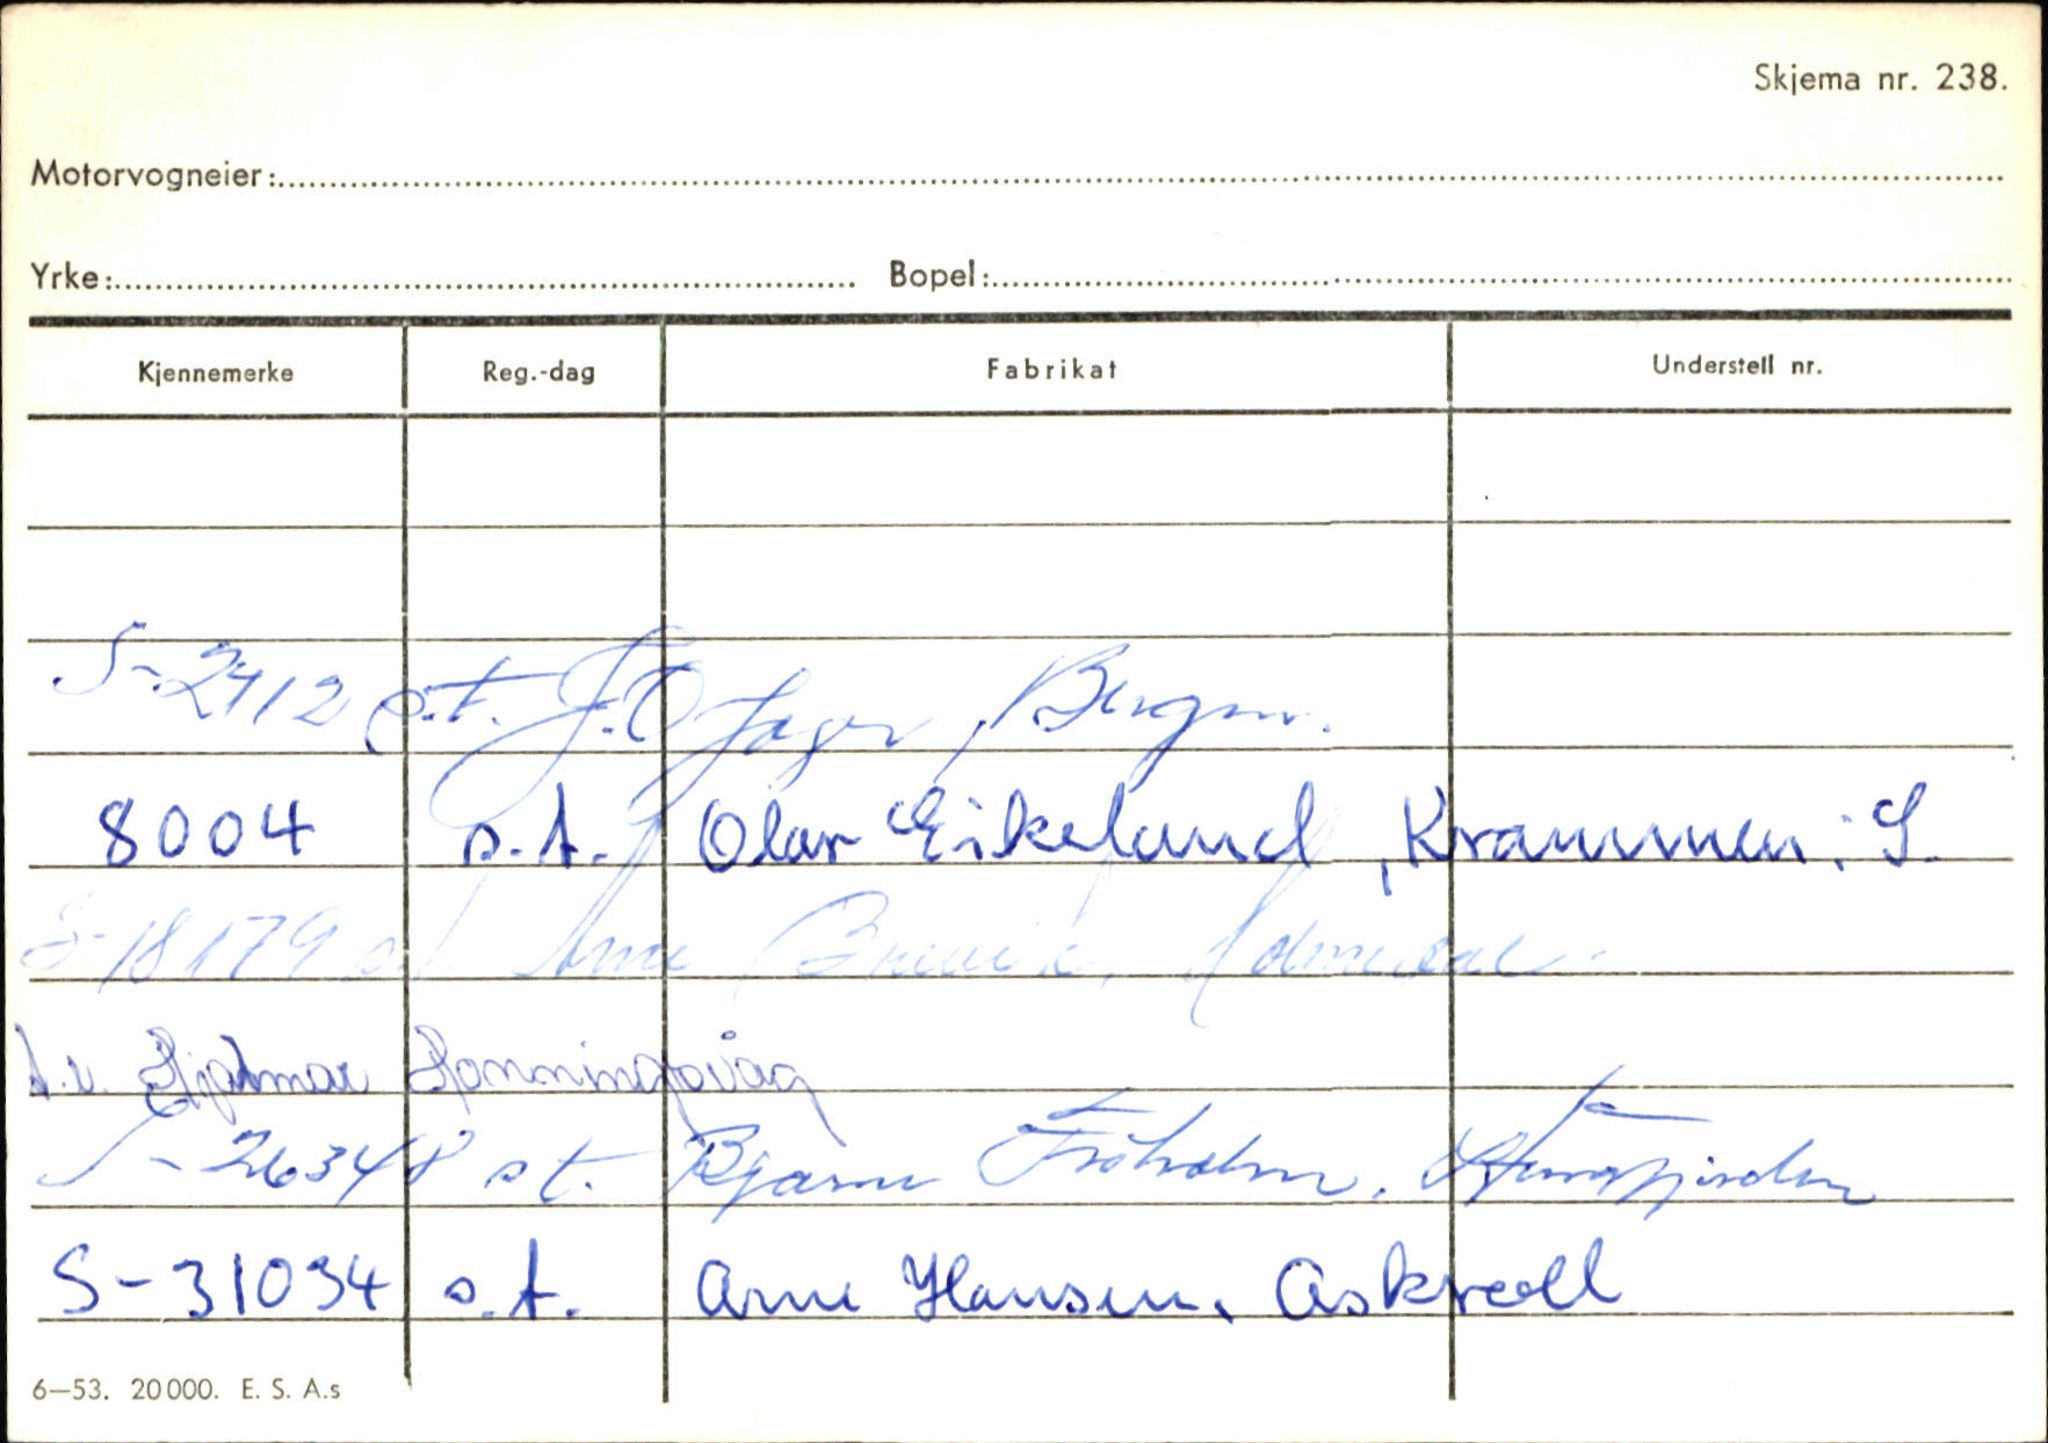 Skjema nr. 238.
Motorvogneier:
Yrke: Bopel:
Kjennemerke Reg.-dag Fabrikat Understell nr.
S-2412 s.t. J.O. Bergm.
8004 s.t. Olav Eikeland, Krammen: S.
S-18179 s.t. Arne Brevik, Holmedal.
Hjalmar Honningsvåg
S-26348 st. Bjarne Fröholm, Stongfjorden
S-31034 s.t. Arne Hansen, Askvoll
6-53. 20000. E. S. A.s